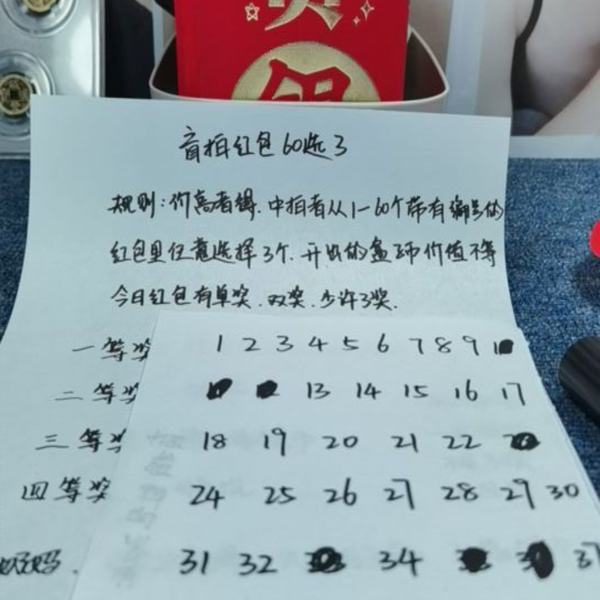 盲拍红包60选3
规则:价高者得.中拍者从1-60个带有编号的
红包里任意选择3个.开出的盒币价值不等
今日红包有单奖.双奖.少许3奖.
一等奖
1 2 3 4 5 6 7 8 9
二等奖
13 14 15 16 17
三等奖
18 19 20 21 22
四等奖
24 25 26 27 28 29 30
31 32 34